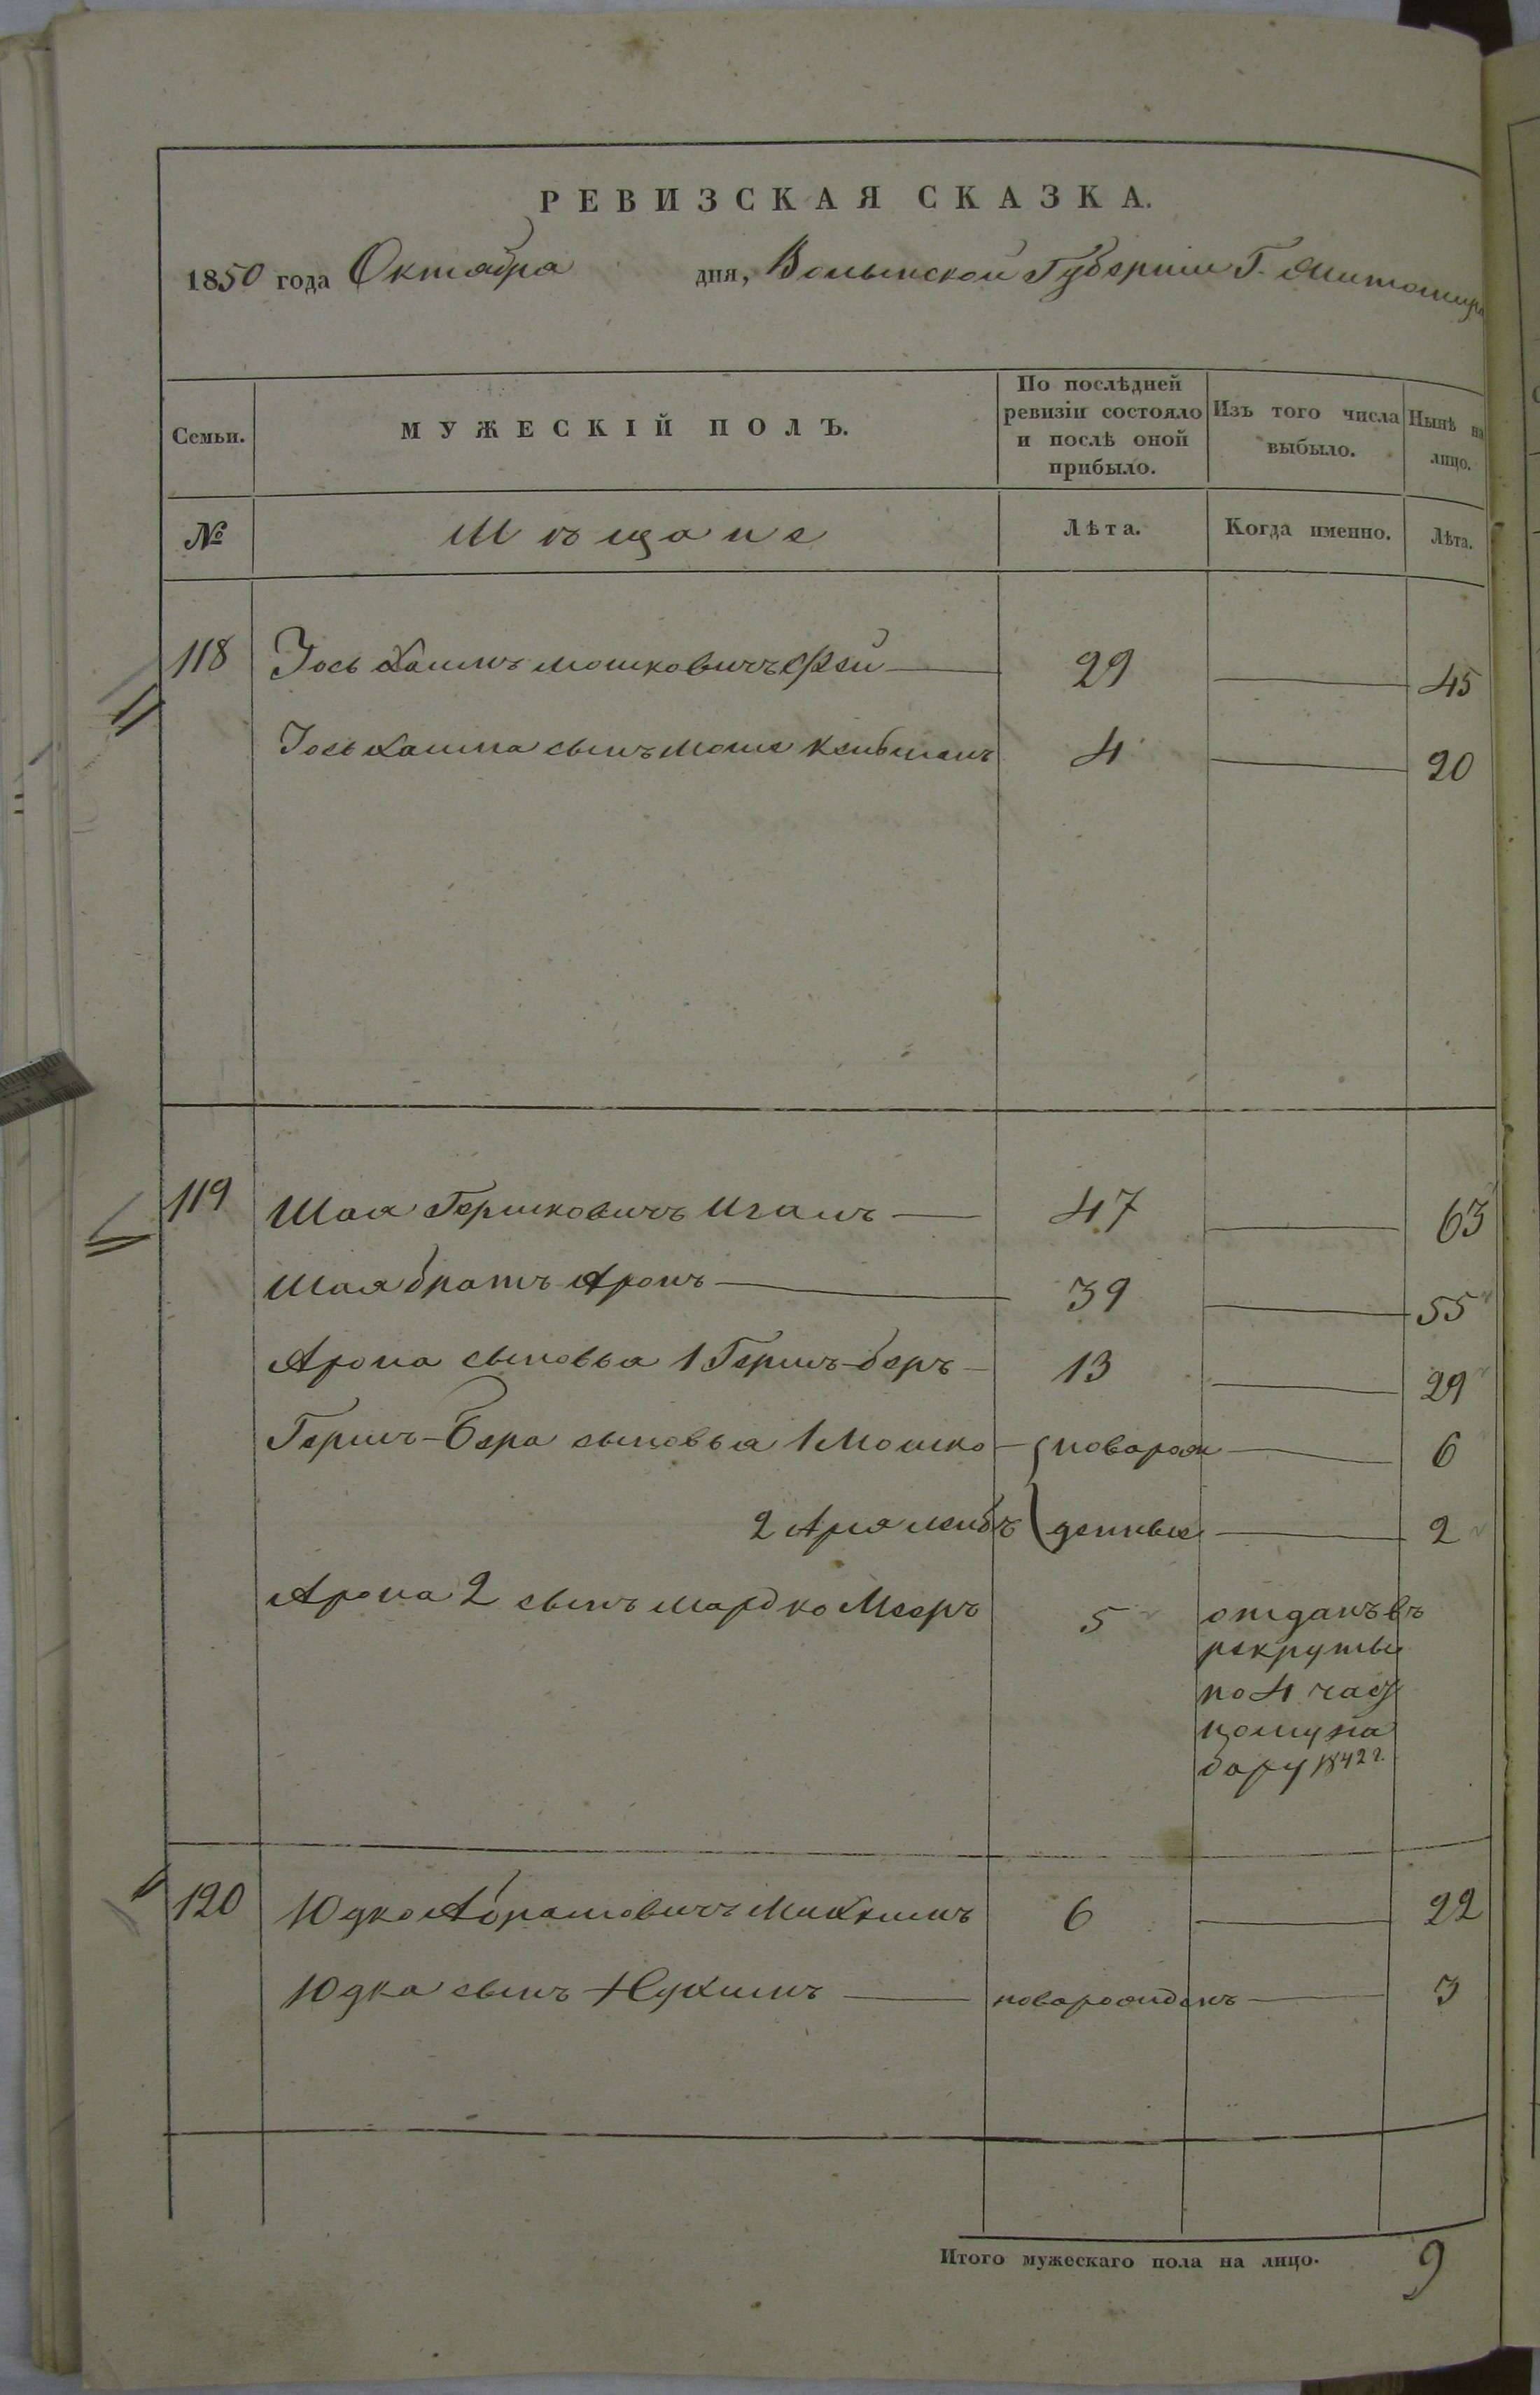 РЕВИЗСКАЯ СКАЗКА.
1850 года Октября дня, Волынской Губернии Г. Житомира
Семьи.
МУЖЕСКІЙ ПОЛЪ.
По послѣдней ревизіи состояло и послѣ оной прибыло.
Изъ того числа выбыло.
Нынѣ на лицо.
№
Мѣщане
Лѣта.
Когда именно.
Лѣта.
118 Іось Хаимъ Мошковичъ 29 45
Іось Хаима сынъ Моше 4 20
119 Шая Гершковичъ 47 63
Шая братъ Аронъ 39 55
Арона сыновья 1 Гершъ-беръ 13 29
Гершъ-Бера сыновья 1 Мошко новорож 6
2 Аря лейбъ денные 2
Арона 2 сынъ Мардко Мееръ 5 отданъ въ
рекруты
по 4 част
ному на
бору 1842 г.
120 Юдко Абрамовичъ 6 22
Юдка сынъ Нухимъ новорожденъ 3
Итого мужескаго пола на лицо. 9